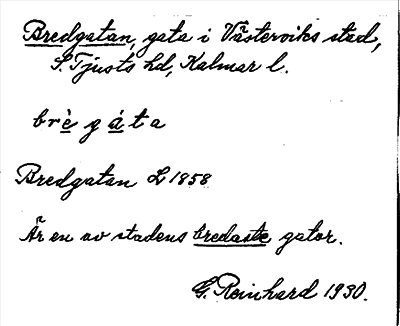 Bredgatan, gata i Västerviks stad,
S. Tjusts hd, Kalmar l.
brè gáta
Bredgatan L 1858
Är en av stadens bredaste gator.
G. Reinhard 1930.